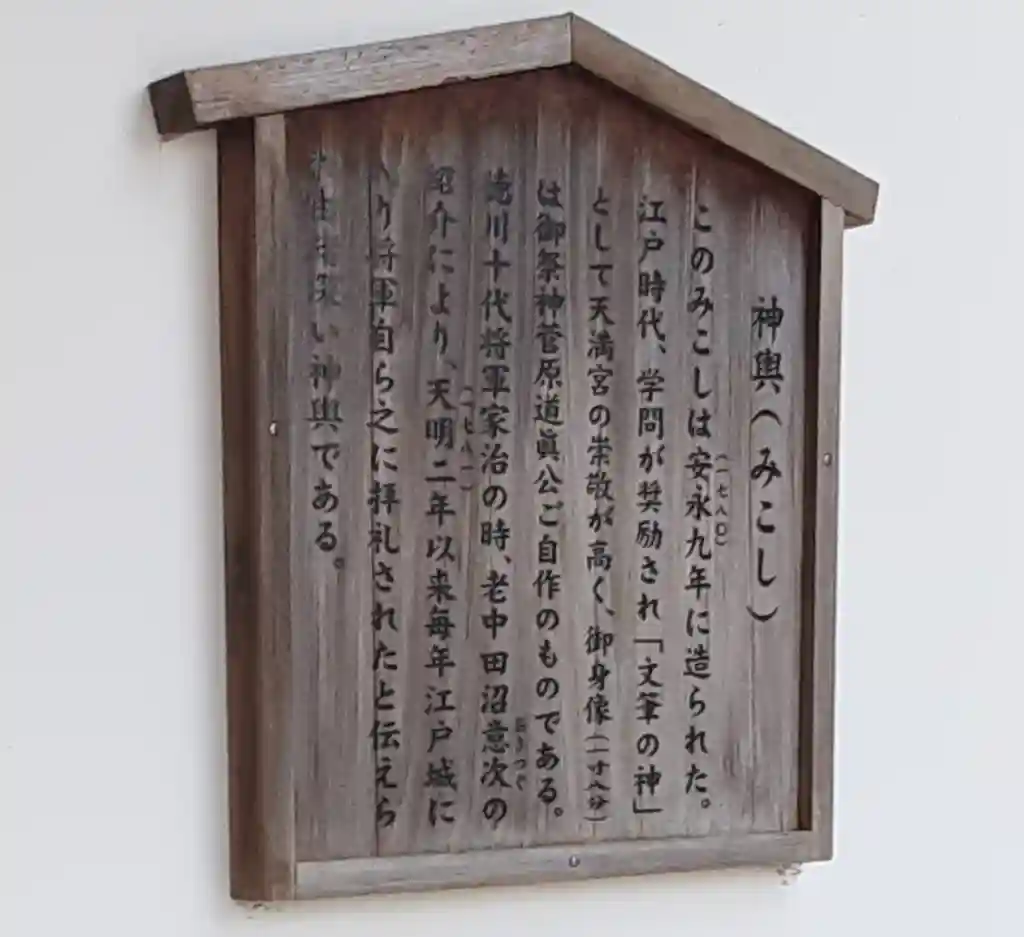 神輿（みこし）
（一七八〇）
このみこしは安永九年に造られた。
江戸時代、学問が奨励され「文筆の神」
として天満宮の崇敬が高く、御身像（一寸八分）
は御祭神菅原道眞公ご自作のものである。
おきつぐ
徳川十代将軍家治の時、老中田沼意次の
（一七八一）
紹介により、天明二年以来毎年江戸城に
入り将軍自ら之に拝礼されたと伝えら
深い神輿である。